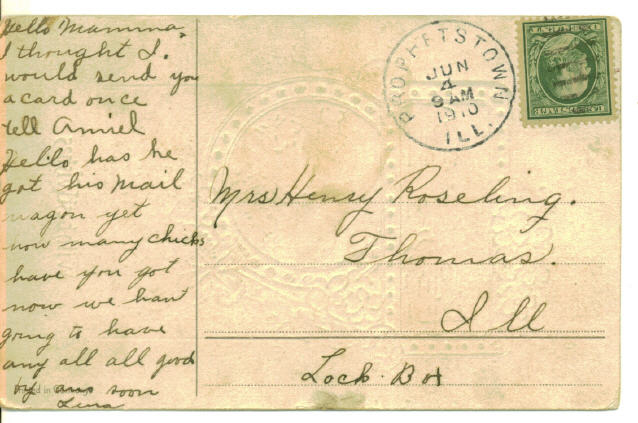 Hello Mamma.
I thought I.
would send you
a card once
tell Amiel
Hello has he
got his mail
wagon yet
how many chicks
have you got
now we han't
going to have
any all all good
by ans soon
Lena
PROPHETSTOWN
JUN
4
9 AM
1910
ILL.
Mrs Henry Roseling.
Thomas.
Ill
Lock Box